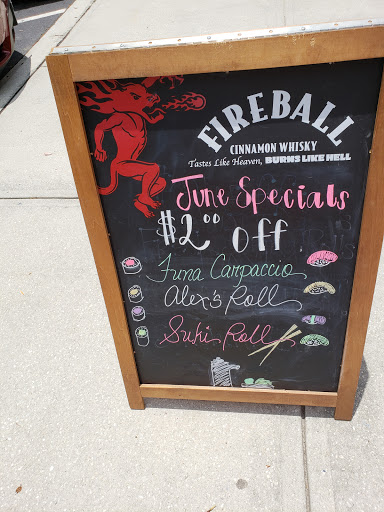 FIREBALL
CINNAMON WHISKY
Tastes Like Heaven, BURNS LIKE HELL
June Specials
$2.00 off
Funa Carpaccio
Alex's Roll
Suki Roll